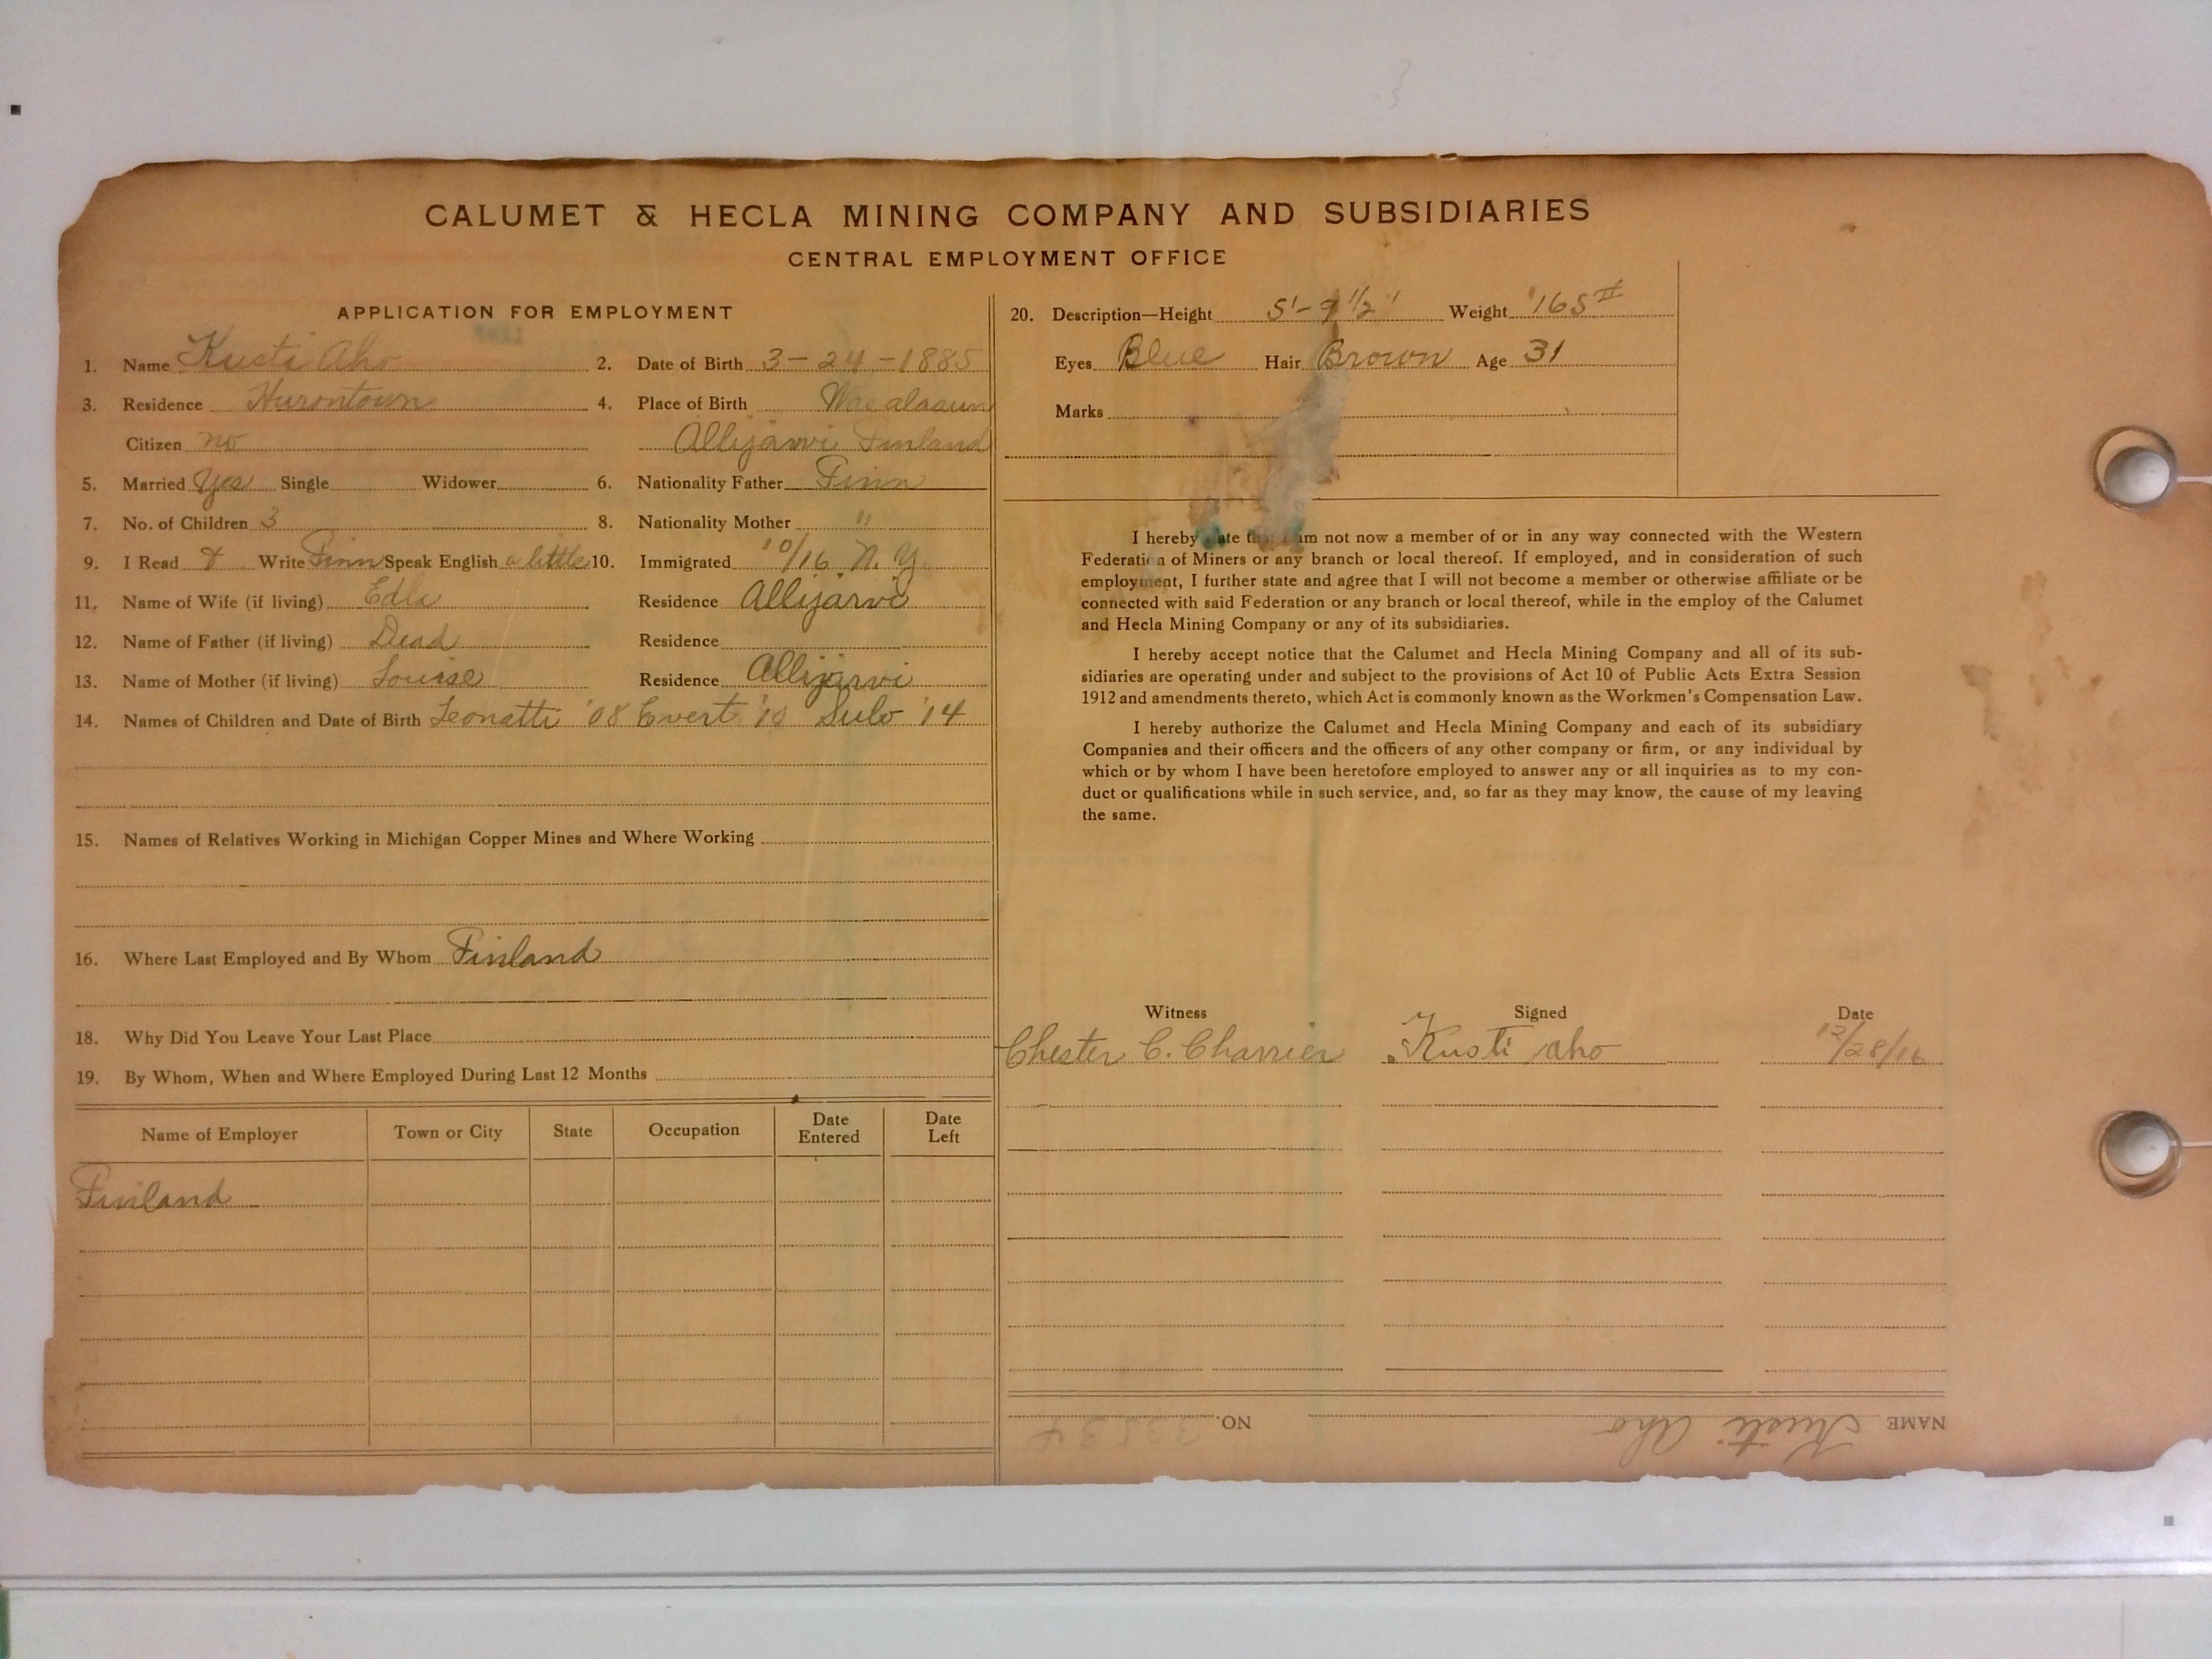 CALUMET & HECLA MINING COMPANY AND SUBSIDIARIES
CENTRAL EMPLOYMENT OFFICE
APPLICATION FOR EMPLOYMENT
1. Name Kusti Aho 2. Date of Birth 3-24-1885
3. Residence Hurontown 4. Place of Birth
Citizen no Allijarvi Finland
5. Married Yes Single Widower 6. Nationality Father Finn
7. No. of Children 3 8. Nationality Mother "
9. I Read & Write Finn Speak English a little 10. Immigrated 10/16 N.Y.
11. Name of Wife (if living) Edla Residence Allijarvi
12. Name of Father (if living) Dead Residence
13. Name of Mother (if living) Louise Residence Allijarvi
14. Names of Children and Date of Birth Leonatti '08 Evert '10 Sulo '14
15. Names of Relatives Working in Michigan Copper Mines and Where Working
16. Where Last Employed and By Whom Finland
18. Why Did You Leave Your Last Place
19. By Whom, When and Where Employed During Last 12 Months
Name of Employer Town or City State Occupation Date Entered Date Left
Finland
20. Description—Height 5'-9 1/2" Weight 165#
Eyes Blue Hair Brown Age 31
Marks
I hereby state that I am not now a member of or in any way connected with the Western
Federation of Miners or any branch or local thereof. If employed, and in consideration of such
employment, I further state and agree that I will not become a member or otherwise affiliate or be
connected with said Federation or any branch or local thereof, while in the employ of the Calumet
and Hecla Mining Company or any of its subsidiaries.
I hereby accept notice that the Calumet and Hecla Mining Company and all of its sub-
sidiaries are operating under and subject to the provisions of Act 10 of Public Acts Extra Session
1912 and amendments thereto, which Act is commonly known as the Workmen's Compensation Law.
I hereby authorize the Calumet and Hecla Mining Company and each of its subsidiary
Companies and their officers and the officers of any other company or firm, or any individual by
which or by whom I have been heretofore employed to answer any or all inquiries as to my con-
duct or qualifications while in such service, and, so far as they may know, the cause of my leaving
the same.
Witness Signed Date
Chester C. Charrier Kusti Aho 12/28/16
NAME Kusti Aho NO.